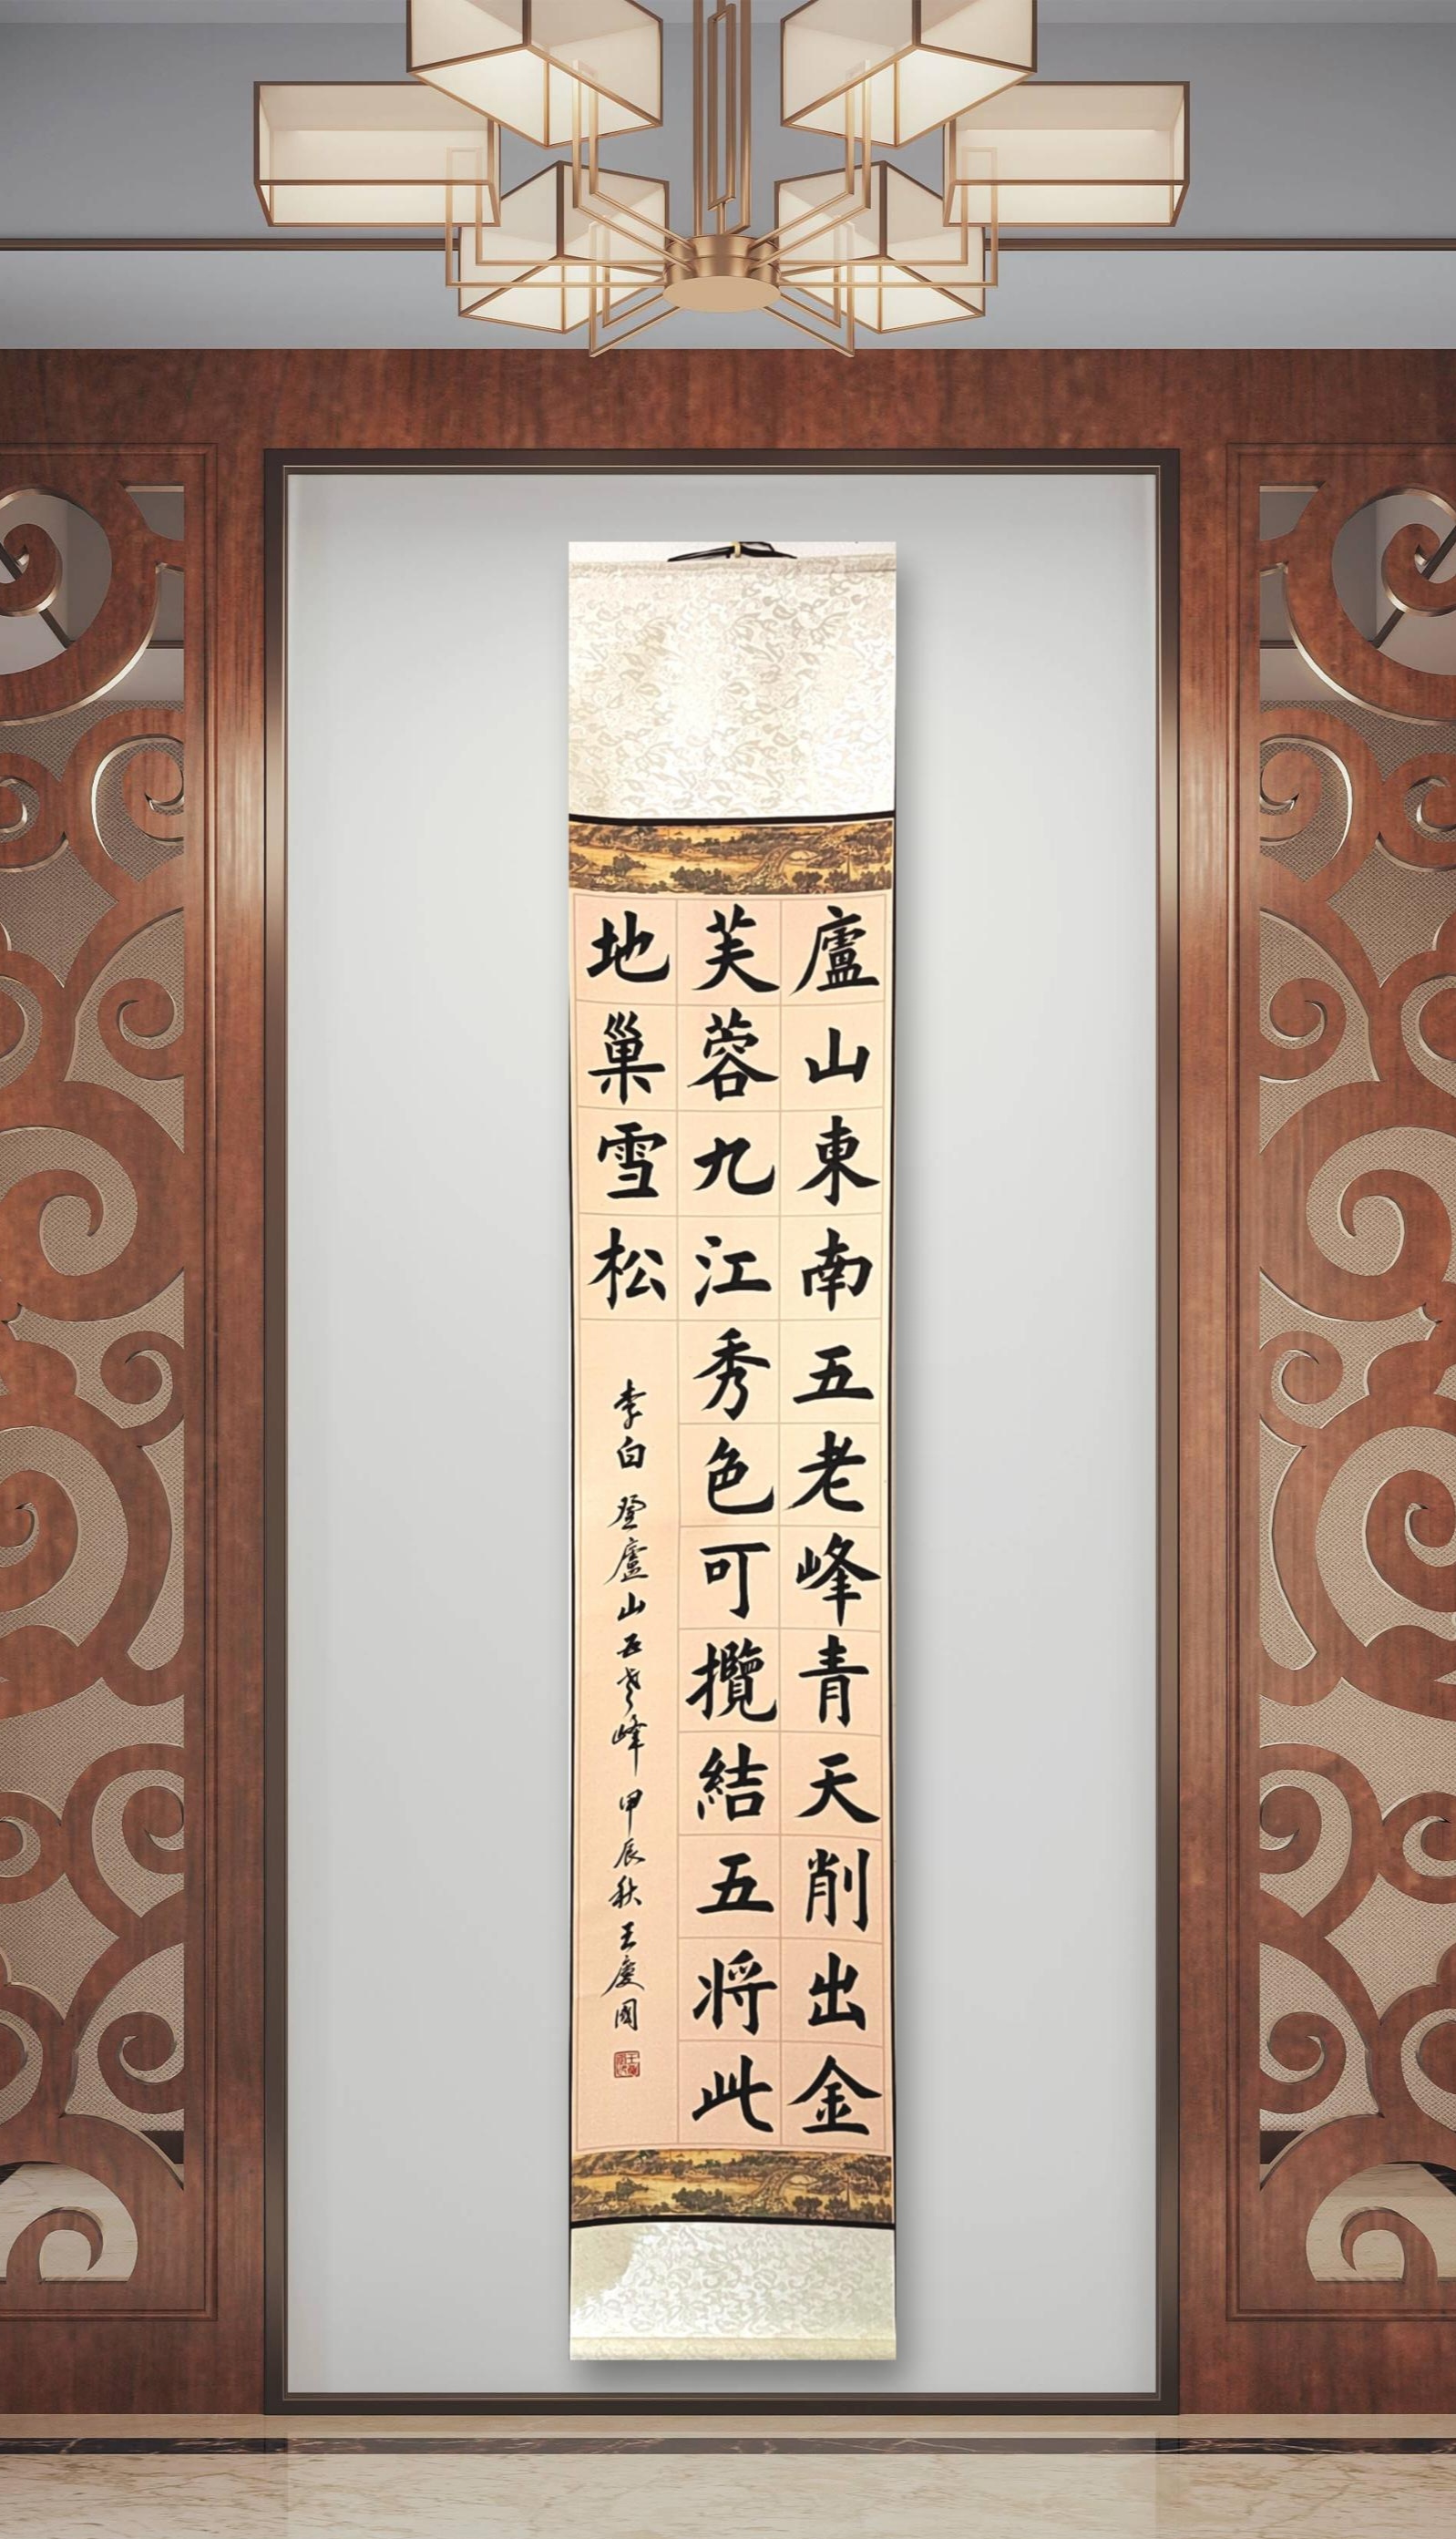 廬山東南五老峰青天削出金
芙蓉九江秀色可攬結五將此
地巢雪松
李白 登廬山五老峰 甲辰秋 王慶國